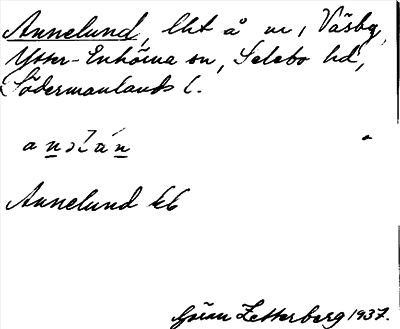 Annelund, lht å nr 1 Väsby,
Ytter-Enhörna sn, Selebo hd,
Södermanlands l.
Annelund kb
Göran Zetterberg 1937.